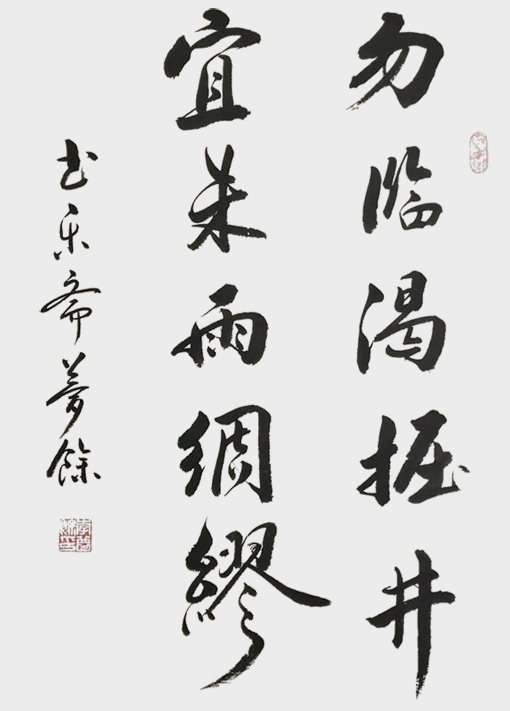 勿临渴掘井
宜未雨绸缪
书乐斋梦馀